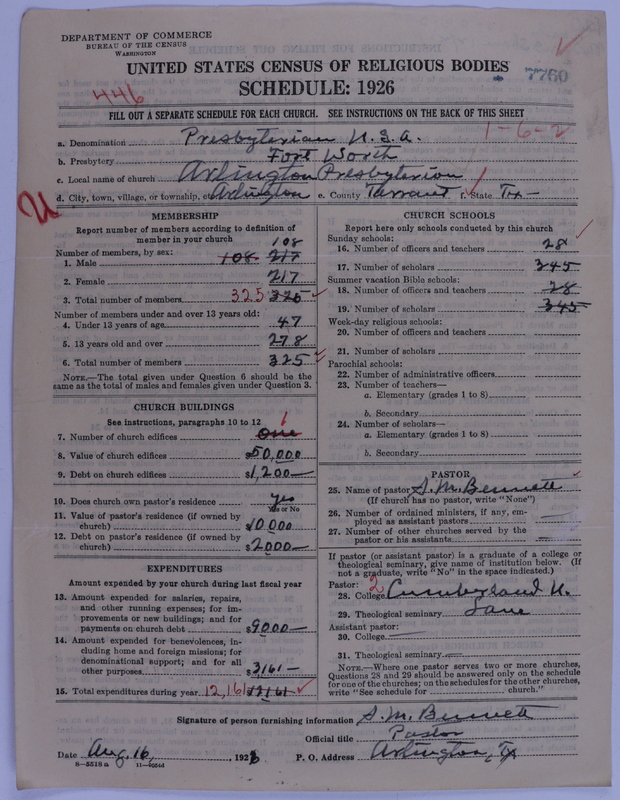 DEPARTMENT OF COMMERCE
BUREAU OF THE CENSUS
WASHINGTON
UNITED STATES CENSUS OF RELIGIOUS BODIES
7760
SCHEDULE: 1926
446
FILL OUT A SEPARATE SCHEDULE FOR EACH CHURCH. SEE INSTRUCTIONS ON THE BACK OF THIS SHEET
1-6-2
a. Denomination Presbyterian U.S.A.
b. Presbytery Fort Worth
c. Local name of church Arlington Presbyterian
d. City, town, village, or township, etc. Arlington e. County Tarrant f. State Tx-
MEMBERSHIP
Report number of members according to definition of
member in your church
Number of members, by sex: 108
1. Male 108 217
2. Female 217
3. Total number of members 325 325
Number of members under and over 13 years old:
4. Under 13 years of age 47
5. 13 years old and over 278
6. Total number of members 325
NOTE.—The total given under Question 6 should be the
same as the total of males and females given under Question 3.
CHURCH BUILDINGS
See instructions, paragraphs 10 to 12
1
7. Number of church edifices One
8. Value of church edifices $50,000
9. Debt on church edifices $1,200—
10. Does church own pastor's residence Yes
Yes or No
11. Value of pastor's residence (if owned by
church) $10000
12. Debt on pastor's residence (if owned by
church) $2000—
EXPENDITURES
Amount expended by your church during last fiscal year
13. Amount expended for salaries, repairs,
and other running expenses; for im-
provements or new buildings; and for
payments on church debt $9000—
14. Amount expended for benevolences, in-
cluding home and foreign missions; for
denominational support; and for all
other purposes $3161—
15. Total expenditures during year 12,161 $12161
CHURCH SCHOOLS
Report here only schools conducted by this church
Sunday schools:
16. Number of officers and teachers 28
17. Number of scholars 345
Summer vacation Bible schools:
18. Number of officers and teachers 28
19. Number of scholars 345
Week-day religious schools:
20. Number of officers and teachers
21. Number of scholars
Parochial schools:
22. Number of administrative officers
23. Number of teachers—
a. Elementary (grades 1 to 8)
b. Secondary
24. Number of scholars—
a. Elementary (grades 1 to 8)
b. Secondary
PASTOR
25. Name of pastor S. M. Bennett
(If church has no pastor, write "None")
26. Number of ordained ministers, if any, em-
ployed as assistant pastors
27. Number of other churches served by the
pastor or his assistants
If pastor (or assistant pastor) is a graduate of a college or
theological seminary, give name of institution below. (If
not a graduate, write "No" in the space indicated.)
Pastor: 2
28. College Cumberland U.
29. Theological seminary Lane
Assistant pastor:
30. College
31. Theological seminary
NOTE.—Where one pastor serves two or more churches,
Questions 28 and 29 should be answered only on the schedule
for one of the churches; on the schedules for the other churches,
write "See schedule for church."
Signature of person furnishing information S. M. Bennett
Official title Pastor
Date Aug. 16, 1926 P. O. Address Arlington, Tx
8—5518 a